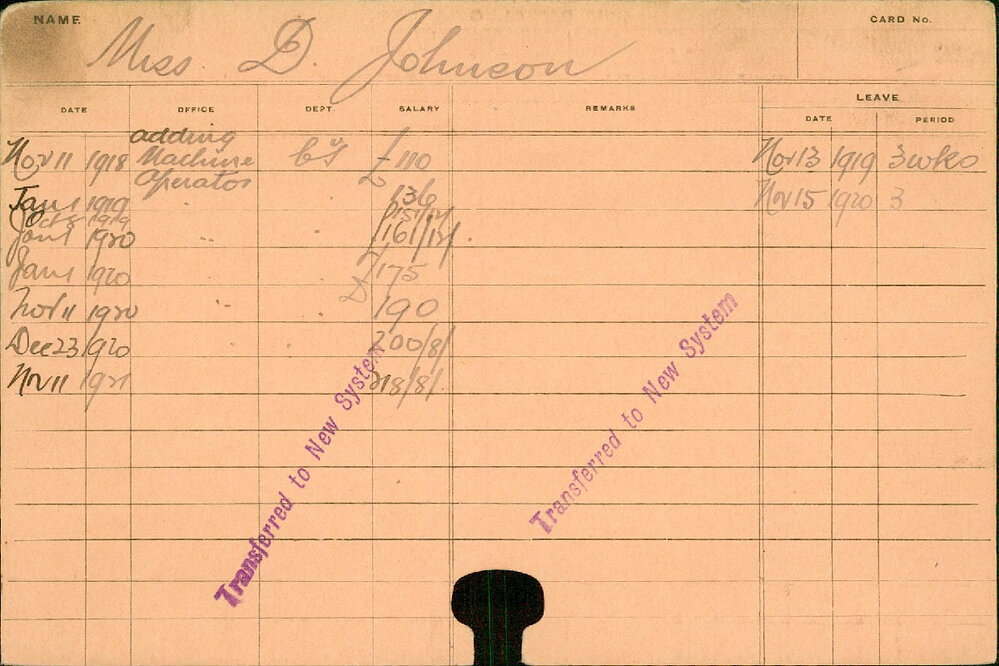 NAME
Miss. D. Johnson
CARD No.
DATE OFFICE DEPT SALARY REMARKS LEAVE
DATE PERIOD
Nov 11 1918 adding Machine Operator £110 Nov 13 1919 3 wks
Jan 1 1919 " 136 Nov 15 1920 3
Oct 8 1919 151/12/
Jan 1 1920 " £161/12/.
Jan 1 1920 " £175
Nov 11 1920 " 190
Dec 23 1920 " 200/8/
Nov 11 1921 218/8/.
Transferred to New System
Transferred to New System